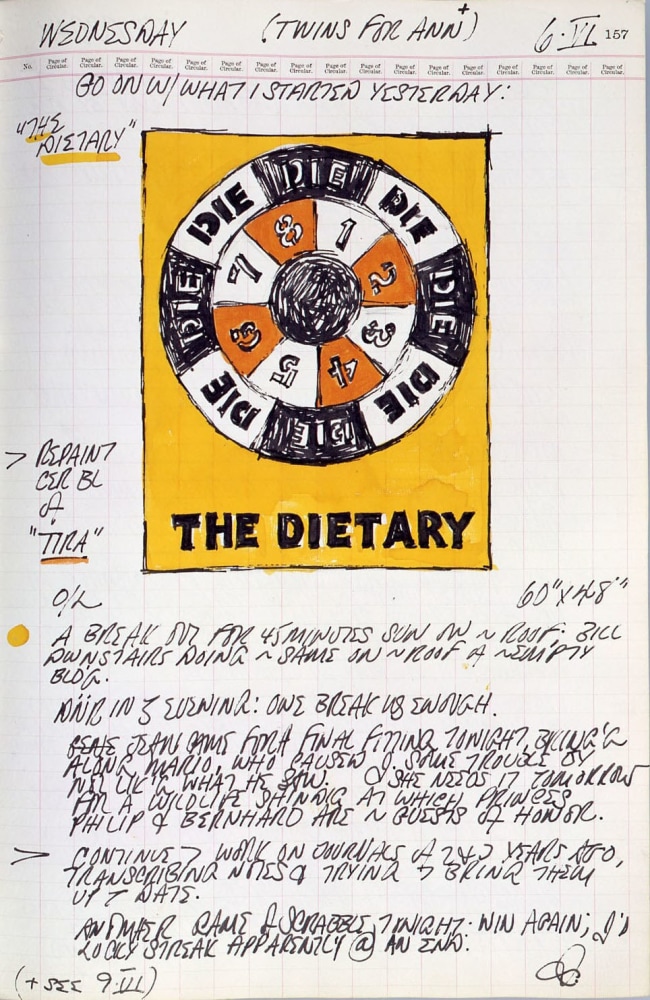 WEDNESDAY (TWINS FOR ANN+) 6·VI 157
No. Page of Circular. Page of Circular. Page of Circular. Page of Circular. Page of Circular. Page of Circular. Page of Circular. Page of Circular. Page of Circular. Page of Circular. Page of Circular. Page of Circular. Page of Circular.
GO ON W/ WHAT I STARTED YESTERDAY:
"THE
DIETARY"
DIE DIE DIE DIE DIE DIE DIE DIE
1 2 3 4 5 6 7 8
THE DIETARY
> REPAINT
CER BL
of
"TIRA"
O/L 60"x48"
A BREAK OUT FOR 45 MINUTES SUN ON ~ ROOF: BILL
DOWNSTAIRS DOING ~ SAME ON ~ ROOF of ~ EMPTY
BLDG.
IN EVENING: ONE BREAK IS ENOUGH.
JEAN CAME FOR A FINAL FITTING TONIGHT, BRING'G
ALONG MARIO, WHO CAUSED SOME TROUBLE BY
NOT LIK'G WHAT HE SAW. SHE NEEDS IT TOMORROW
FOR A WILDLIFE SHINDIG AT WHICH PRINCES
PHILIP & BERNHARD ARE ~ GUESTS of HONOR.
> CONTINUE WORK ON JOURNALS of YEARS AGO,
TRANSCRIBING NOTES & TRYING TO BRING THEM
UP TO DATE.
ANOTHER GAME of SCRABBLE TONIGHT: WIN AGAIN; J's
LUCKY STREAK APPARENTLY @ AN END.
(+ SEE 9·VI)